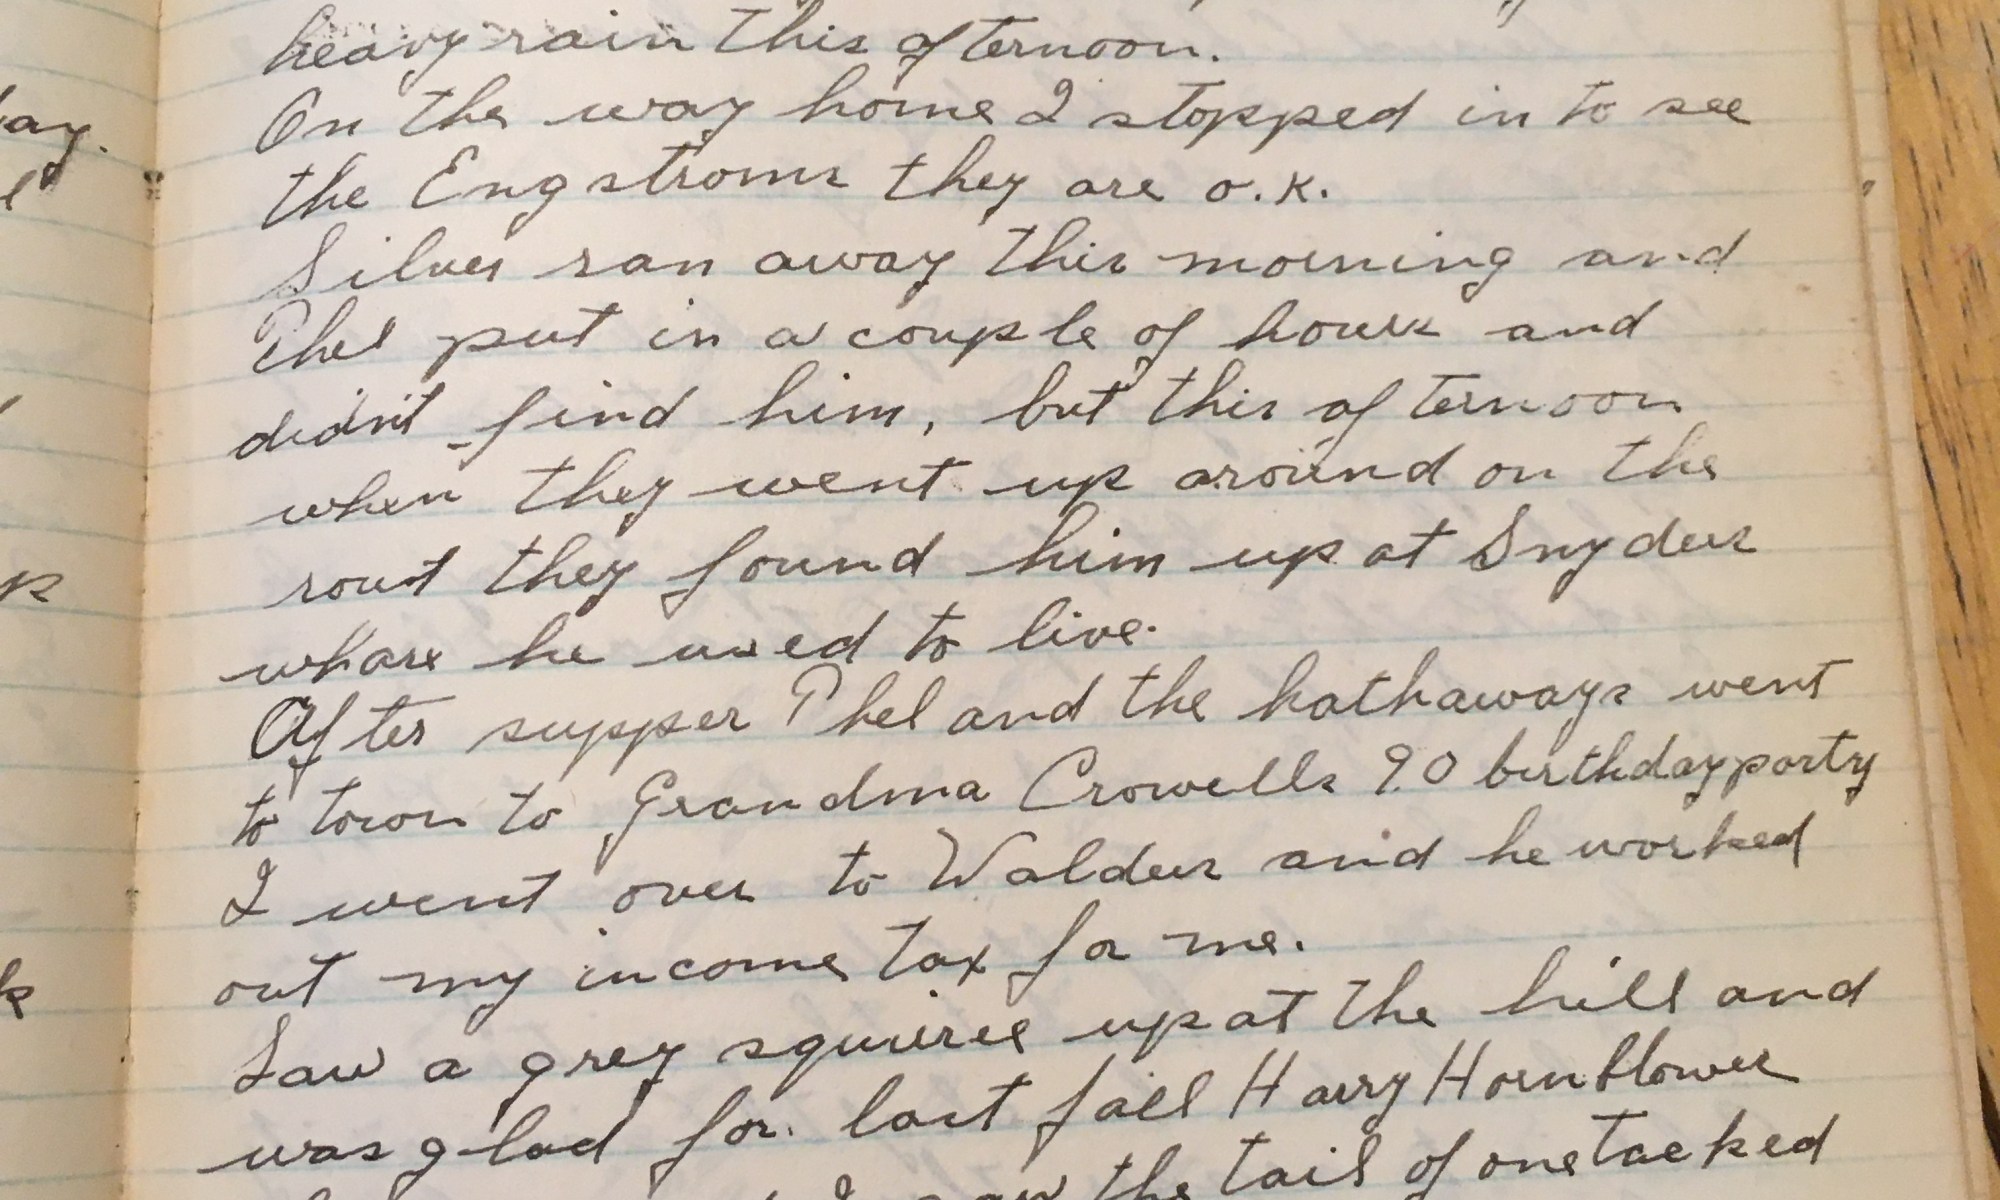 ay.
heavy rain this afternoon.
On the way home I stopped in to see
the Engstroms they are o.k.
Silver ran away this morning and
Phel put in a couple of hours and
didn't find him, but this afternoon
when they went up around on the
rout they found him up at Snyders
whare he used to live.
After supper Phel and the hathaways went
to town to Grandma Crowells 90 birthday party
I went over to Walders and he worked
out my income tax for me.
Saw a grey squirrel up at the hill and
was glad for last fall Harry Hornblower
the tail of one tacked